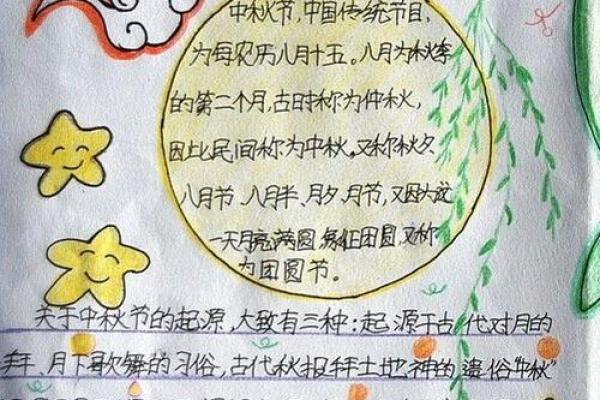 中秋节,中国传统节目,
为每农历八月十五。八月为秋季
的第二个月,古时称为仲秋,
因此民间称为中秋。又称秋夕、
八月节、八月半、月夕、月节,又因为这
一天月亮满圆,象征团圆,又称
为团圆节。
关于中秋节的起源,大致有三种:起源于古代对月的
拜、月下歌舞的习俗,古代秋报拜土地神的遗俗“中秋”